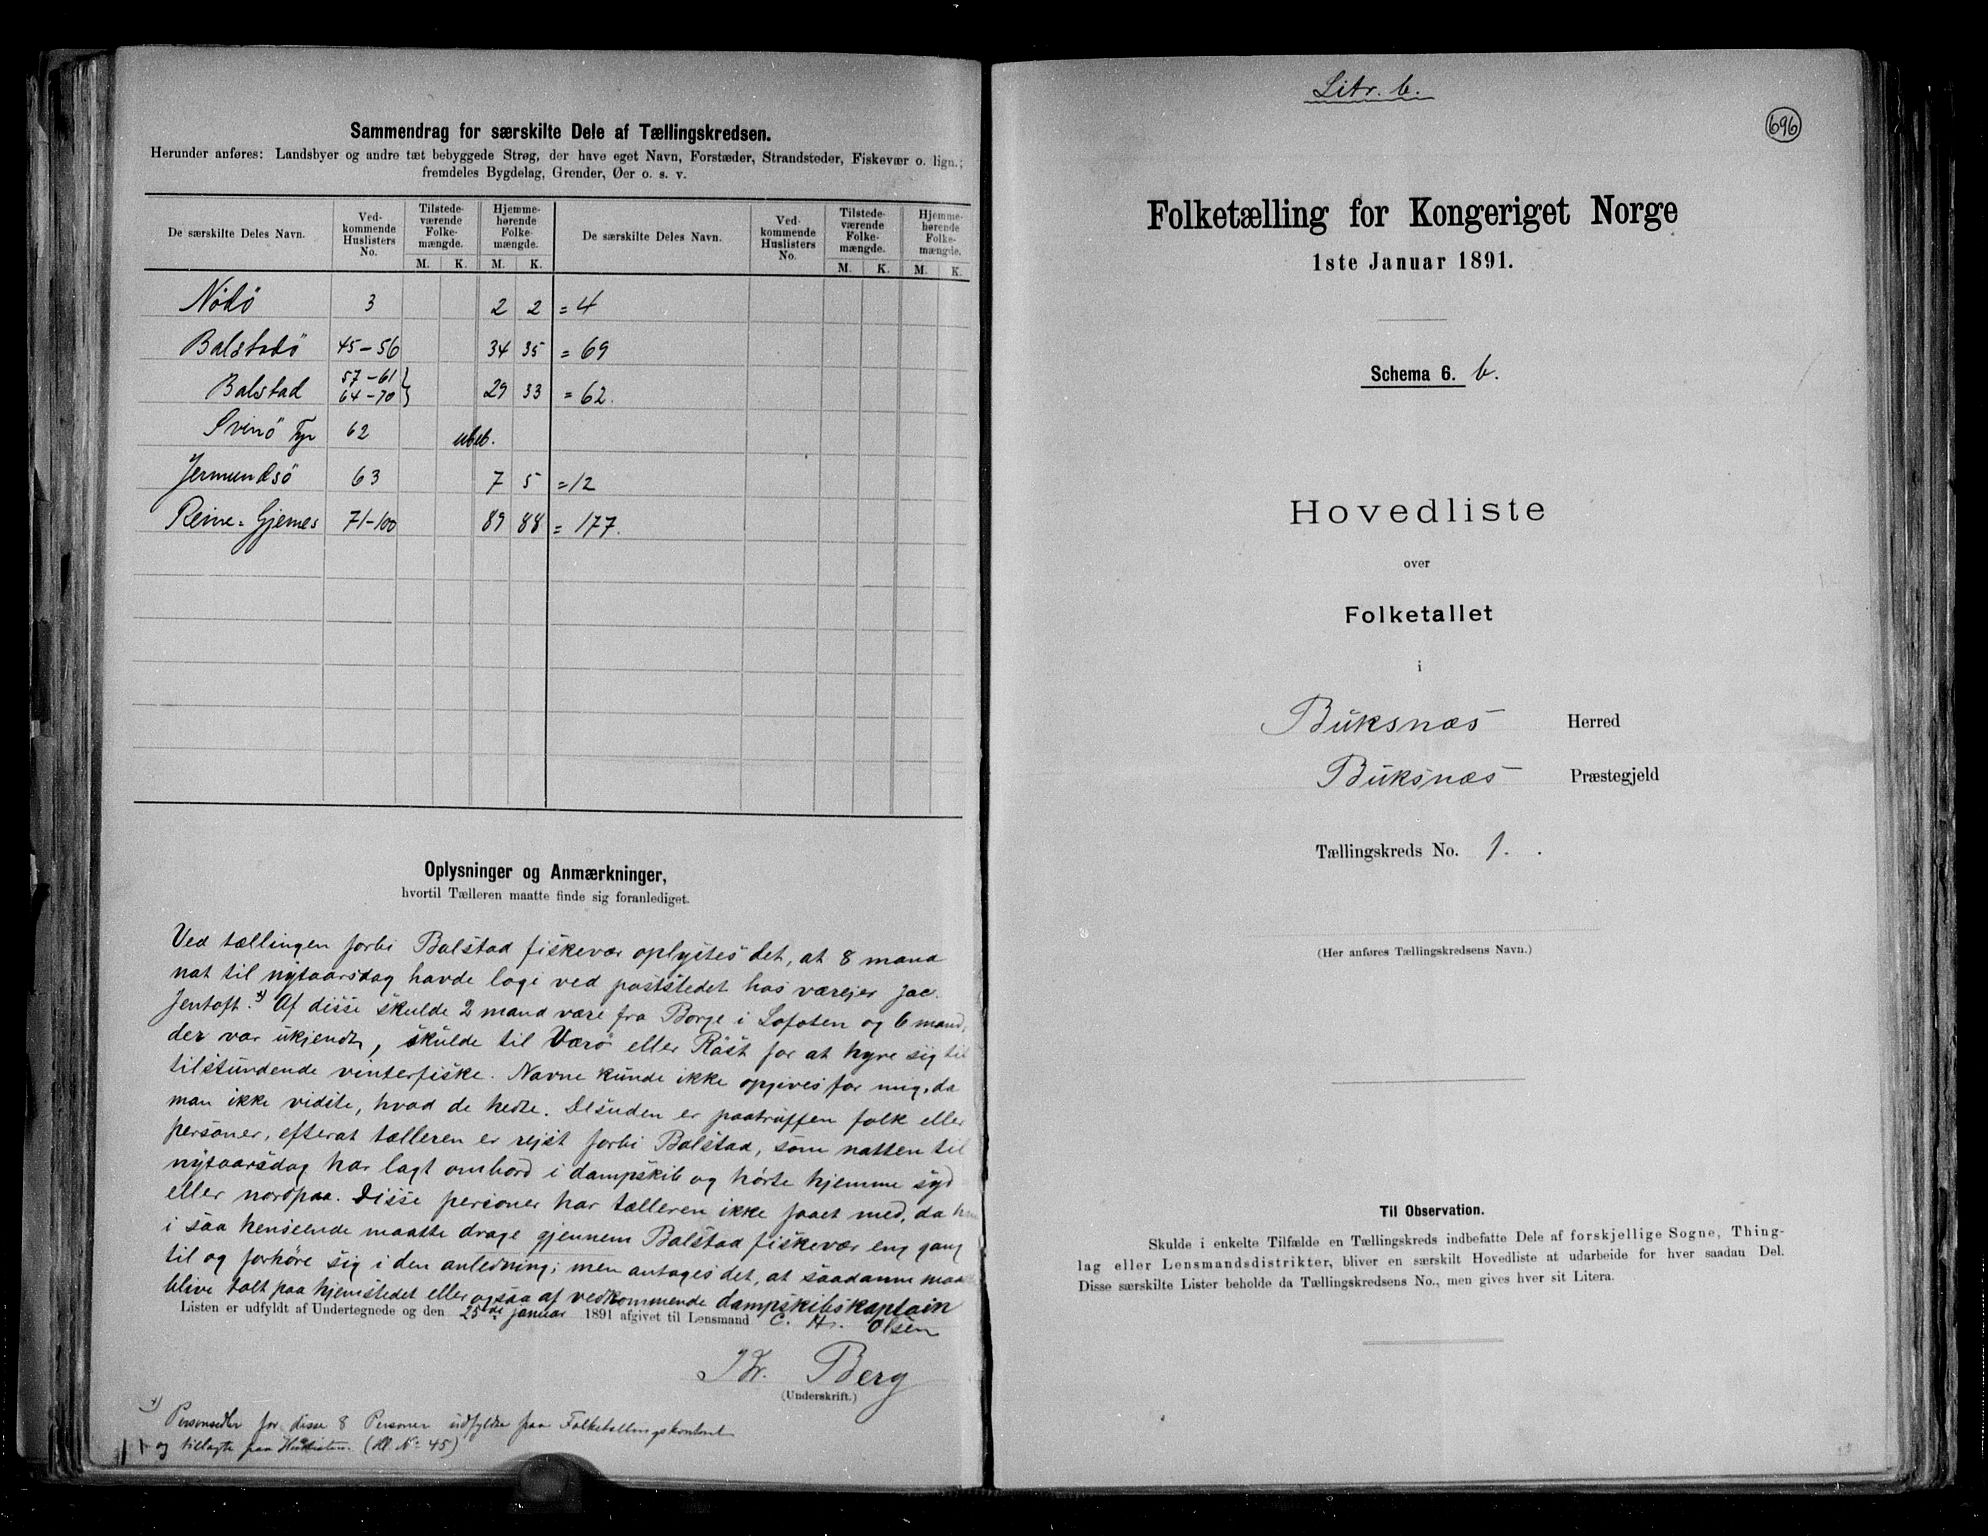 Sammendrag for særskilte Dele af Tællingskredsen.
Herunder anføres: Landsbyer og andre tæt bebyggede Strøg, der have eget Navn, Forstæder, Strandsteder, Fiskevær o. lign.;
fremdeles Bygdelag, Grender, Øer o. s. v.
De særskilte Deles Navn. Ved-kommende Huslisters No. Tilstede-værende Folke-mængde. Hjemme-hørende Folke-mængde. De særskilte Deles Navn. Ved-kommende Huslisters No. Tilstede-værende Folke-mængde. Hjemme-hørende Folke-mængde.
M. K. M. K. M. K. M. K.
3 2 2 = 4
Balstadö 45-56 34 35 = 69
57-61 }
Balstad 64-70 } 29 33 = 62.
Svinö Fyr 62 ubeb.
Jermundsö 63 7 5 = 12
Reine-Gjernes 71-100 89 88 = 177.
Oplysninger og Anmærkninger,
hvortil Tælleren maatte finde sig foranlediget.
Ved tællingen forbi Balstad fiskevær oplystes det, at 8 mand
nat til nytaarsdag havde loge ved poststedet hos værejer Jac.
Jentoft. *) Af disse skulde 2 mand være fra Borge i Lofoten og 6 mand,
der var ukjendt, skulde til Værö eller Röst for at hyre sig til
tilstundende vinterfiske. Navne kunde ikke opgives for mig, da
man ikke vidste, hvad de hedte. Desuden er paatruffen folk eller
personer, efterat tælleren er rejst forbi Balstad, som natten til
nytaarsdag har lagt ombord i dampskib og hørte hjemme syd
eller nordpaa. Disse personer har tælleren ikke faaet med, da
i saa henseende maatte drage gjennem Balstad fiskevær en gang
til og forhøre sig i den anledning; men antages det, at saadanne
blive talt paa hjemstedet eller ogsaa af vedkommende dampskibskaptain
Listen er udfyldt af Undertegnede og den 25de januar 1891 afgivet til Lensmand C. H. Olsen
Berg
(Underskrift.)
*) Personsedler for disse 8 Personer udfyldte paa Folketællingskontoret
og tillagte paa Huslisten. (Hl. No. 45)
Litr. b.
696
Folketælling for Kongeriget Norge
1ste Januar 1891.
Schema 6. b.
Hovedliste
over
Folketallet
i
Buksnæs Herred
Buksnæs Præstegjeld
Tællingskreds No. 1.
(Her anføres Tællingskredsens Navn.)
Til Observation.
Skulde i enkelte Tilfælde en Tællingskreds indbefatte Dele af forskjellige Sogne, Thing-
lag eller Lensmandsdistrikter, bliver en særskilt Hovedliste at udarbeide for hver saadan Del.
Disse særskilte Lister beholde da Tællingskredsens No., men gives hver sit Litera.